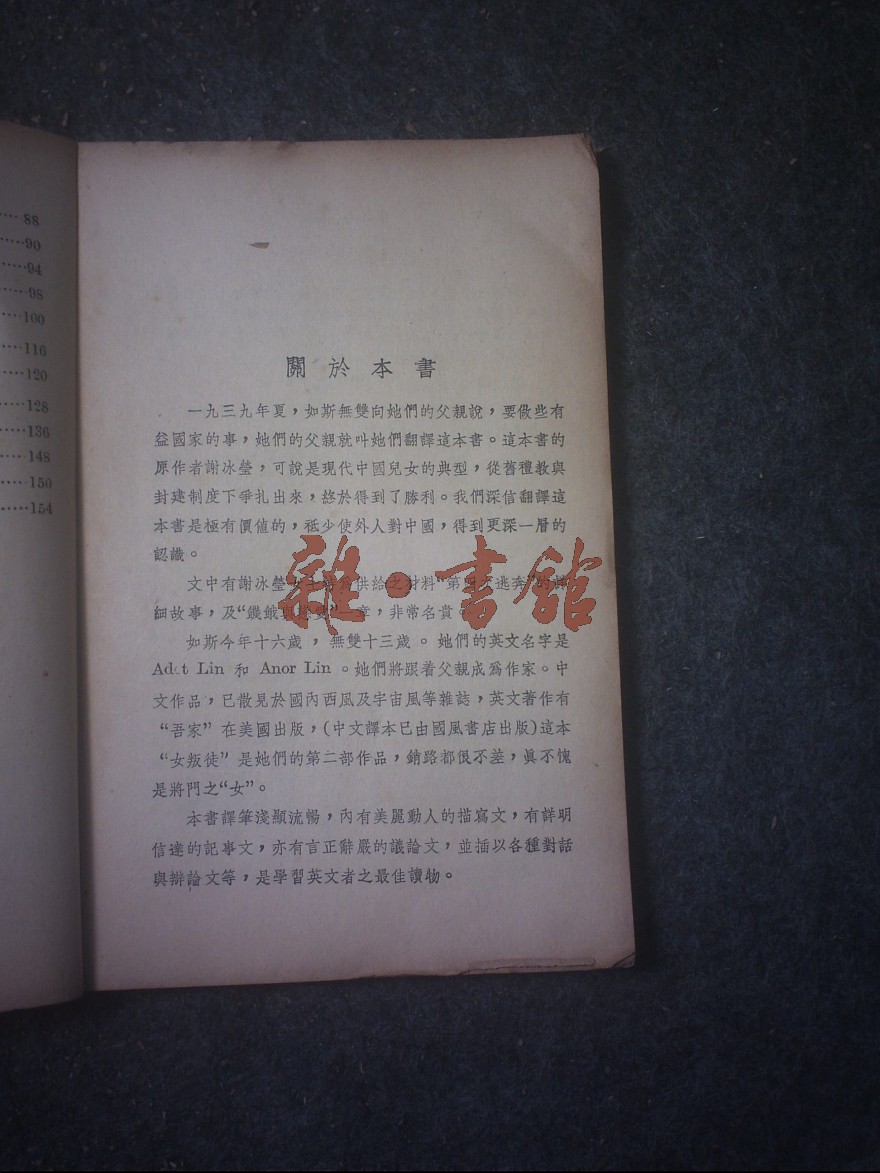 88
90
94
98
100
116
120
128
136
148
150
154
關於本書
一九三九年夏，如斯無雙向她們的父親說，要做些有
益國家的事，她們的父親就叫她們翻譯這本書。這本書的
原作者謝冰瑩，可說是現代中國兒女的典型，從舊禮教與
封建制度下爭扎出來，終於得到了勝利。我們深信翻譯這
本書是極有價值的，祗少使外人對中國，得到更深一層的
認識。
文中有謝冰瑩女士供給之材料“第四次逃奔”的詳
細故事，及“饑餓與”一章，非常名貴。
如斯今年十六歲，無雙十三歲。她們的英文名字是
Adet Lin 和 Anor Lin。她們將跟着父親成爲作家。中
文作品，已散見於國內西風及宇宙風等雜誌，英文著作有
“吾家”在美國出版，(中文譯本已由國風書店出版)這本
“女叛徒”是她們的第二部作品，銷路都很不差，眞不愧
是將門之“女”。
本書譯筆淺顯流暢，內有美麗動人的描寫文，有詳明
信達的記事文，亦有言正辭嚴的議論文，並插以各種對話
與辯論文等，是學習英文者之最佳讀物。
雜·書館